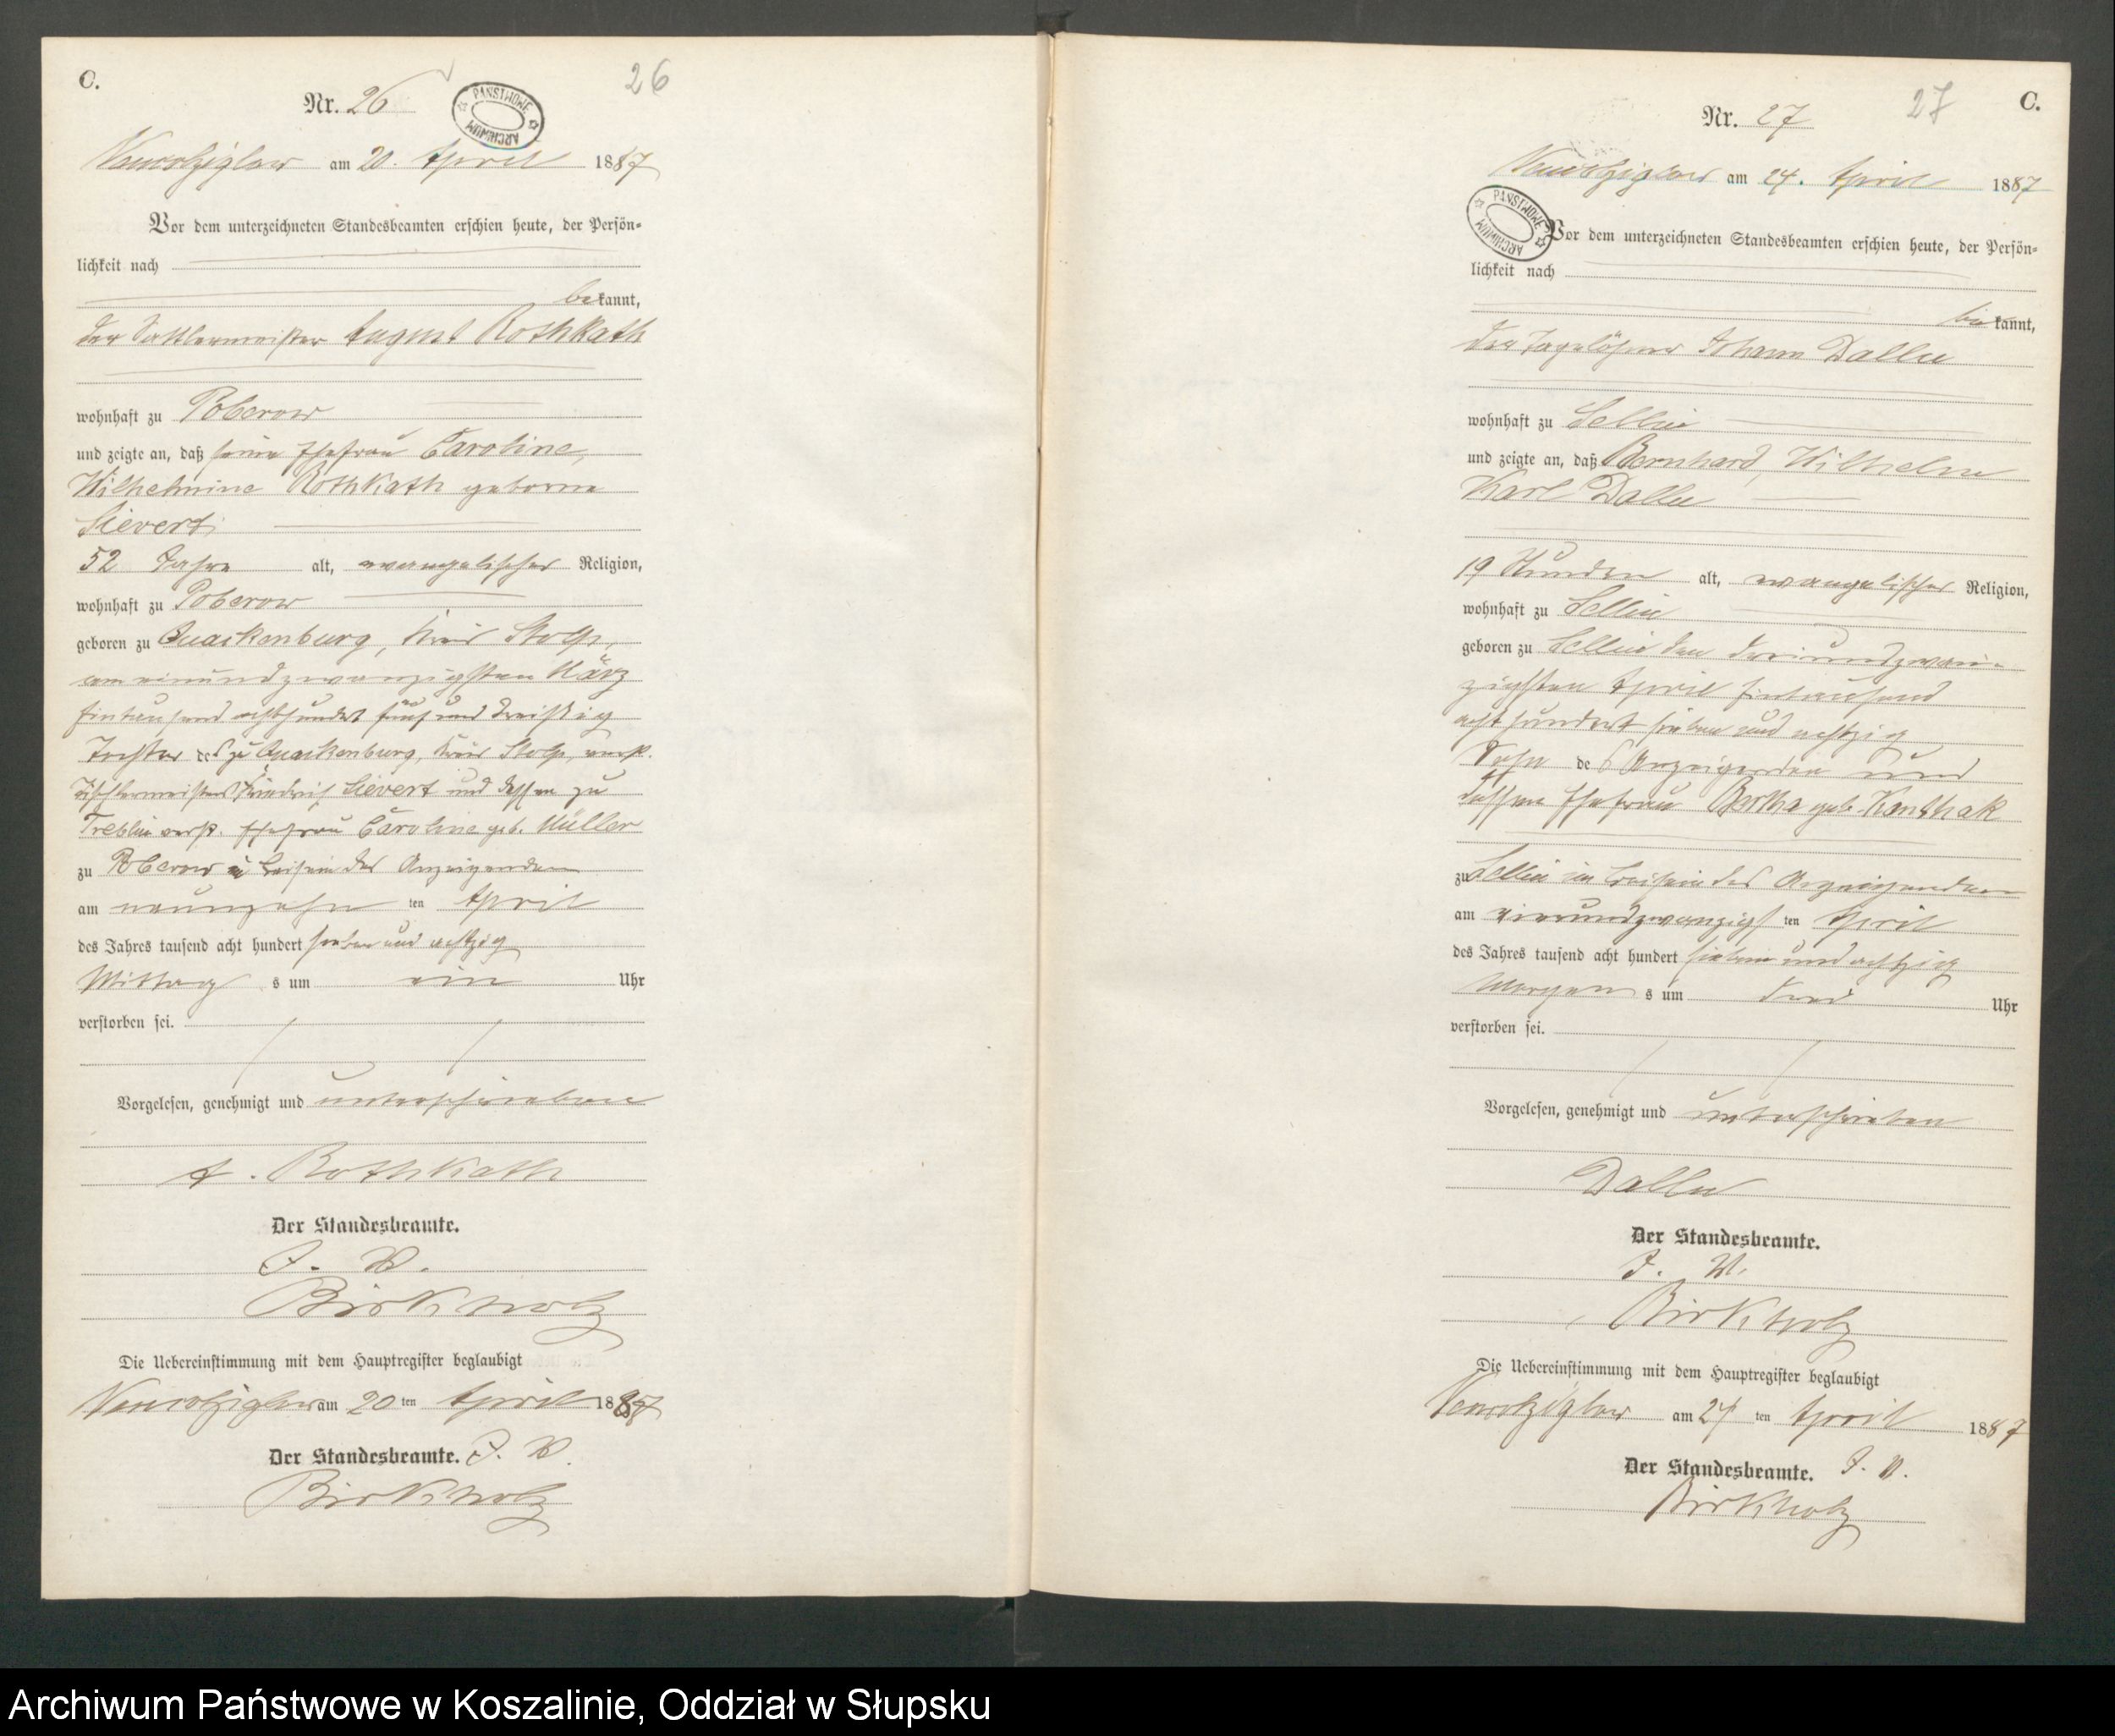 C.
Nr. 26
PAŃSTWOWE ARCHIWUM
26
am 20. April 1887
Vor dem unterzeichneten Standesbeamten erschien heute, der Persön-
lichkeit nach
bekannt,
der Sattlermeister August Rothkath
wohnhaft zu Poberow
und zeigte an, daß seine Ehefrau Caroline,
Wilhelmine Rothkath geborne
Sievert,
52 Jahre alt, evangelischer Religion,
wohnhaft zu Poberow
geboren zu Quackenburg, Kreis Stolp,
am einundzwanzigsten März
Eintausend achthundert fünf und dreißig
Tochter des zu Quackenburg, Kreis Stolp, verst.
Tischlermeisters Friedrich Sievert und dessen zu
Treblin verst. Ehefrau Caroline geb. Müller
zu Poberow in Beisein des Anzeigenden
am neunzehn ten April
des Jahres tausend acht hundert sieben und achtzig
Mittag s um ein Uhr
verstorben sei.
Vorgelesen, genehmigt und unterschrieben
A. Rothkath
Der Standesbeamte.
J. V.
Birkholz
Die Uebereinstimmung mit dem Hauptregister beglaubigt
am 20 ten April 1887
Der Standesbeamte. J. V.
Birkholz
C.
Nr. 27
27
am 24. April 1887
PAŃSTWOWE ARCHIWUM
Vor dem unterzeichneten Standesbeamten erschien heute, der Persön-
lichkeit nach
bekannt,
der Tagelöhner Johann Dallu
wohnhaft zu Sellin
und zeigte an, daß Bernhard, Wilhelm
Karl Dallu
19 Stunden alt, evangelischer Religion,
wohnhaft zu Sellin
geboren zu Sellin den dreiundzwan-
zigsten April Eintausend
acht hundert sieben und achtzig
Sohn des Anzeigenden und
dessen Ehefrau Bertha geb. Kanthak
zu Sellin im Beisein des Anzeigenden
am vierundzwanzigsten April
des Jahres tausend acht hundert sieben und achtzig
Morgen s um drei Uhr
verstorben sei.
Vorgelesen, genehmigt und unterschrieben
Dallu
Der Standesbeamte.
J. V.
Birkholz
Die Uebereinstimmung mit dem Hauptregister beglaubigt
am 24 ten April 1887
Der Standesbeamte. J. V.
Birkholz
Archiwum Państwowe w Koszalinie, Oddział w Słupsku